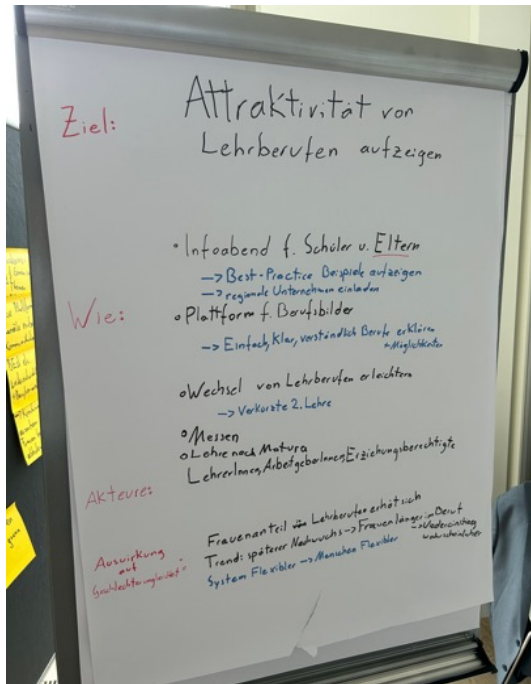 Ziel:
Attraktivität von
Lehrberufen aufzeigen
• Infoabend f. Schüler u. Eltern
—> Best-Practice Beispiele aufzeigen
—> regionale Unternehmen einladen
Wie:
• Plattform f. Berufsbilder
—> Einfach, Klar, verständlich Berufe erklären
Möglichkeiten
• Wechsel von Lehrberufen erleichtern
—> Verkürzte 2. Lehre
• Messen
• Lehre nach Matura
Akteure:
LehrerInnen, ArbeitgeberInnen, Erziehungsberechtigte
Auswirkung
auf
Frauenanteil in Lehrberufen erhöt sich
Trend: späterer Nachwuchs —> Frauen länger im Beruf
—> Wiedereinstieg
wahrscheinlicher
System Flexibler —> Menschen Flexibler